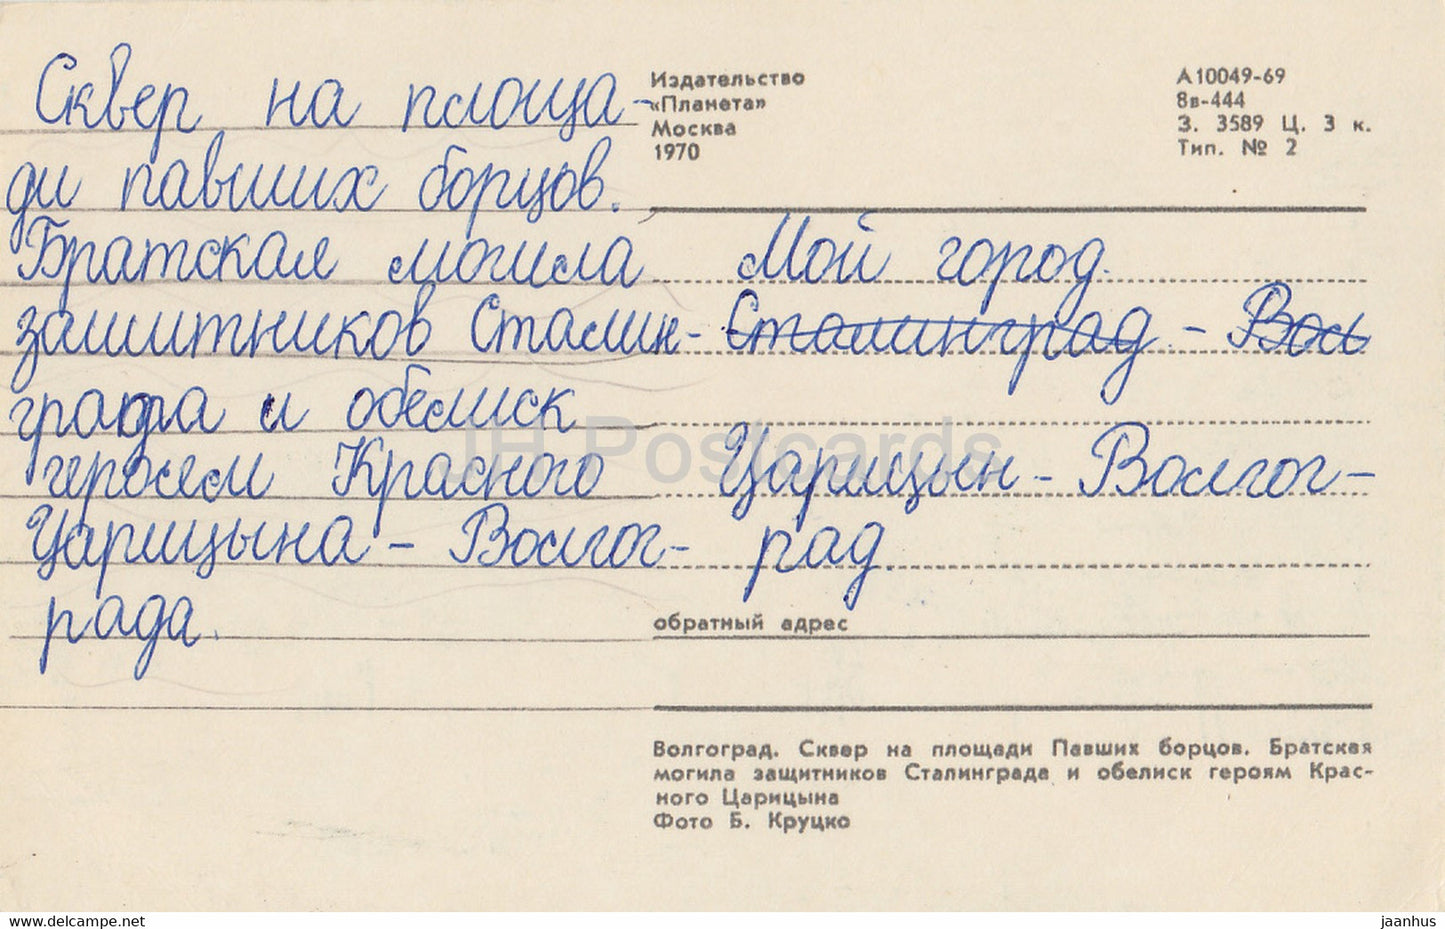 Сквер на площа-
ди павших борцов.
Братская могила
защитников Сталин-
града и обелиск
героем Красного
Царицына - Волгог-
рада.
Издательство
«Планета»
Москва
1970
А10049-69
8в-444
З. 3589 Ц. 3 к.
Тип. № 2
Мой город.
Сталинград. - Вол
Царицын - Волгог-
рад.
обратный адрес
Волгоград. Сквер на площади Павших борцов. Братская
могила защитников Сталинграда и обелиск героям Крас-
ного Царицына
Фото Б. Круцко
JH Postcards
www.delcampe.net
jaanhus